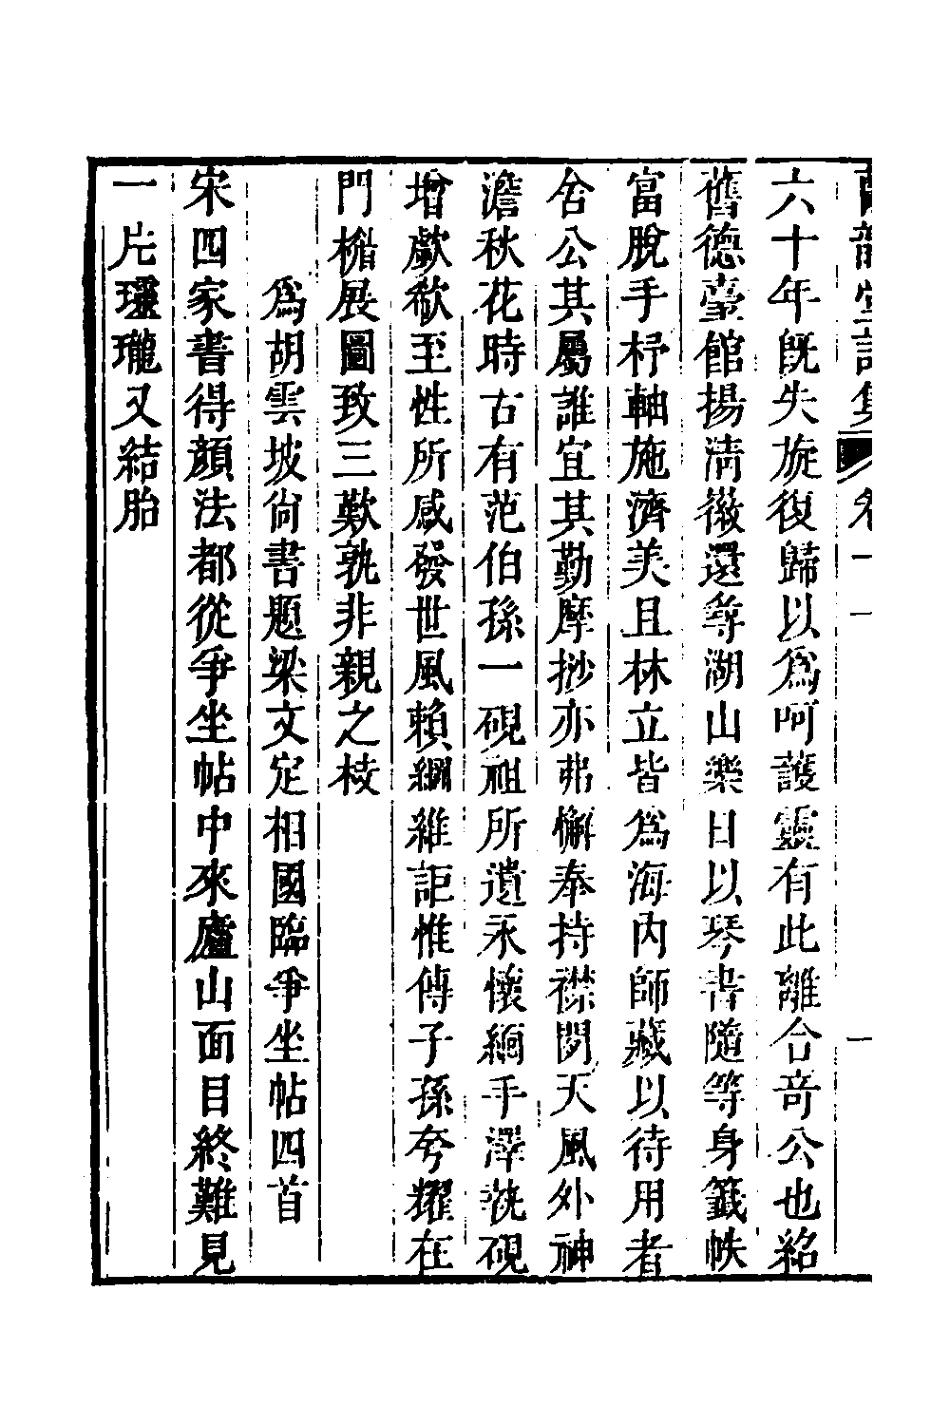 蘭韻堂詩集 卷一 一
六十年旣失旋復歸以爲呵護靈有此離合奇公也紹
舊德臺館揚淸徽還尋湖山樂日以琴書隨等身籤帙
富脫手杼軸施濟美且林立皆爲海內師藏以待用者
舍公其屬誰宜其勤摩挱亦弗懈奉持襟閒天風外神
澹秋花時古有范伯孫一硯祖所遺永懷緬手澤執硯
增歔欷至性所感發世風賴綱維詎惟傳子孫夸耀在
門楣展圖致三歎孰非親之枝
爲胡雲坡尙書題梁文定相國臨爭坐帖四首
宋四家書得顏法都從爭坐帖中來廬山面目終難見
一片瓏又結胎